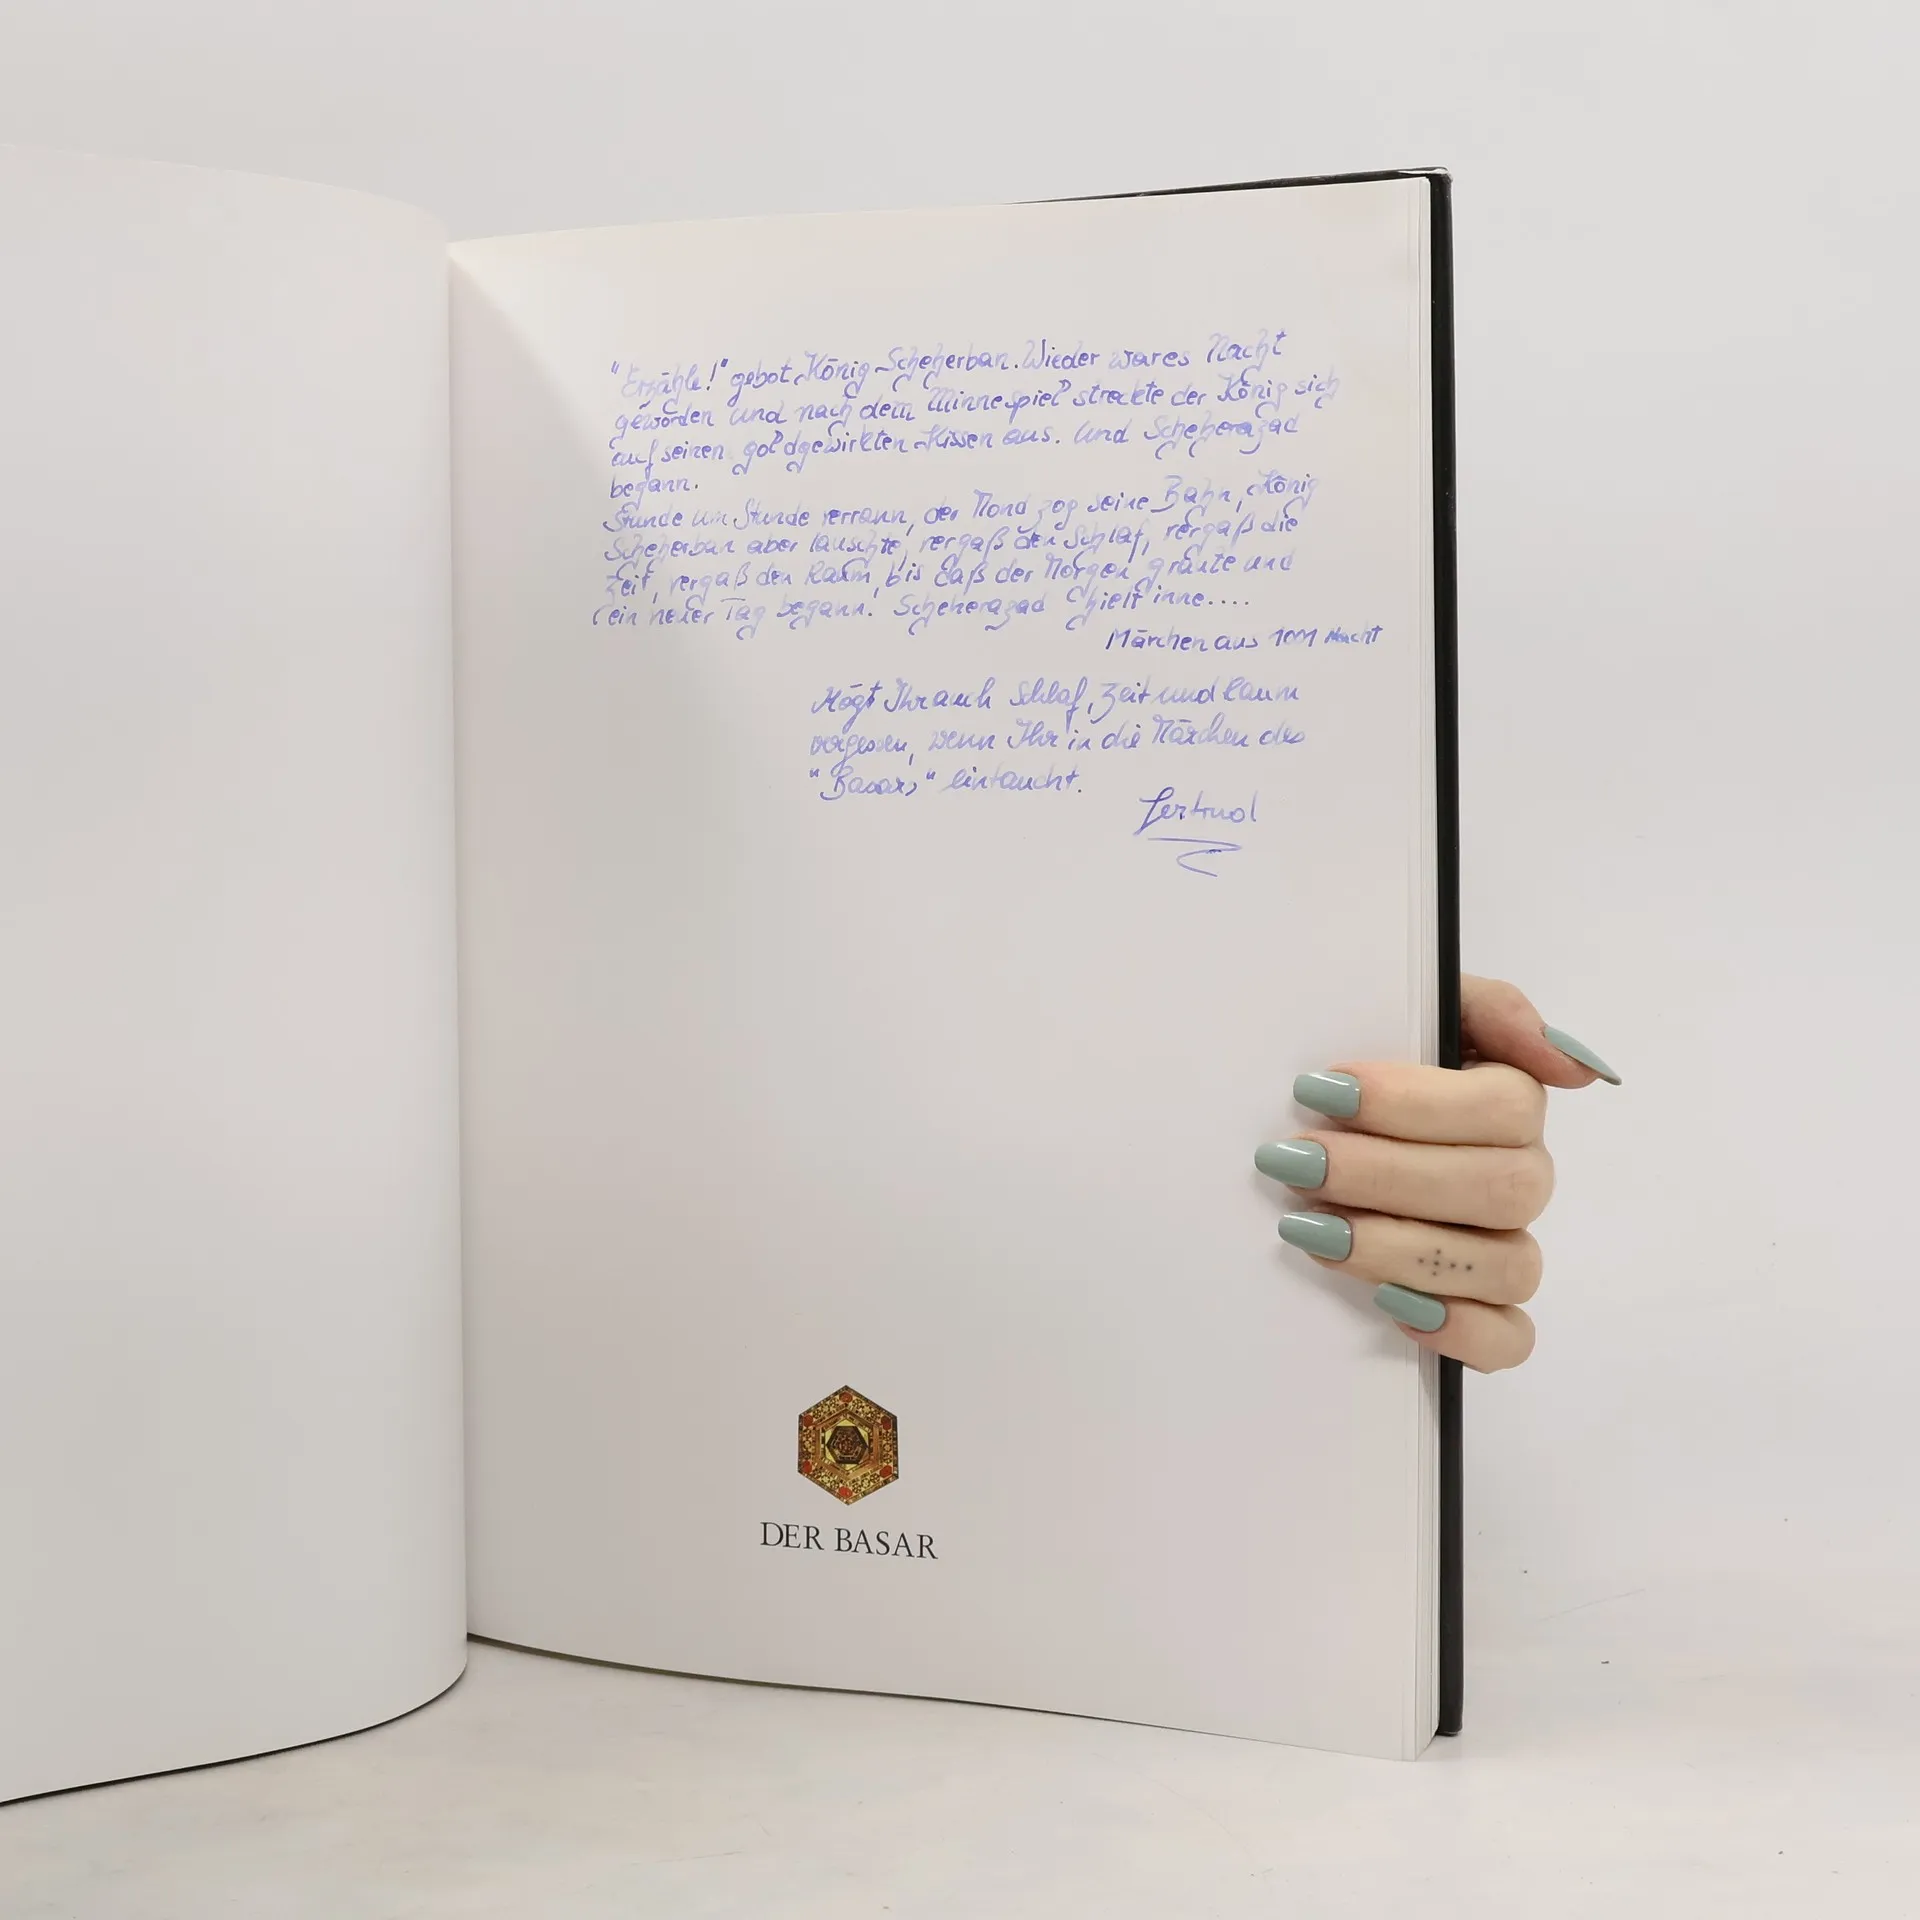 "Erzähle!" gebot König Scheherban. Wieder war es Nacht
geworden und nach dem Minnespiel streckte der König sich
auf seinen goldgewirkten Kissen aus. Und Scheherazad
begann.
Stunde um Stunde verrann, der Mond zog seine Bahn, König
Scheherban aber lauschte, vergaß den Schlaf, vergaß die
Zeit, vergaß den Raum, bis daß der Morgen graute und
ein neuer Tag begann. Scheherazad hielt inne....
Märchen aus 1001 Nacht
Mögt Ihr auch Schlaf, Zeit und Raum
vergessen, wenn Ihr in die Märchen des
"Basars" eintaucht.
Gertrud
DER BASAR